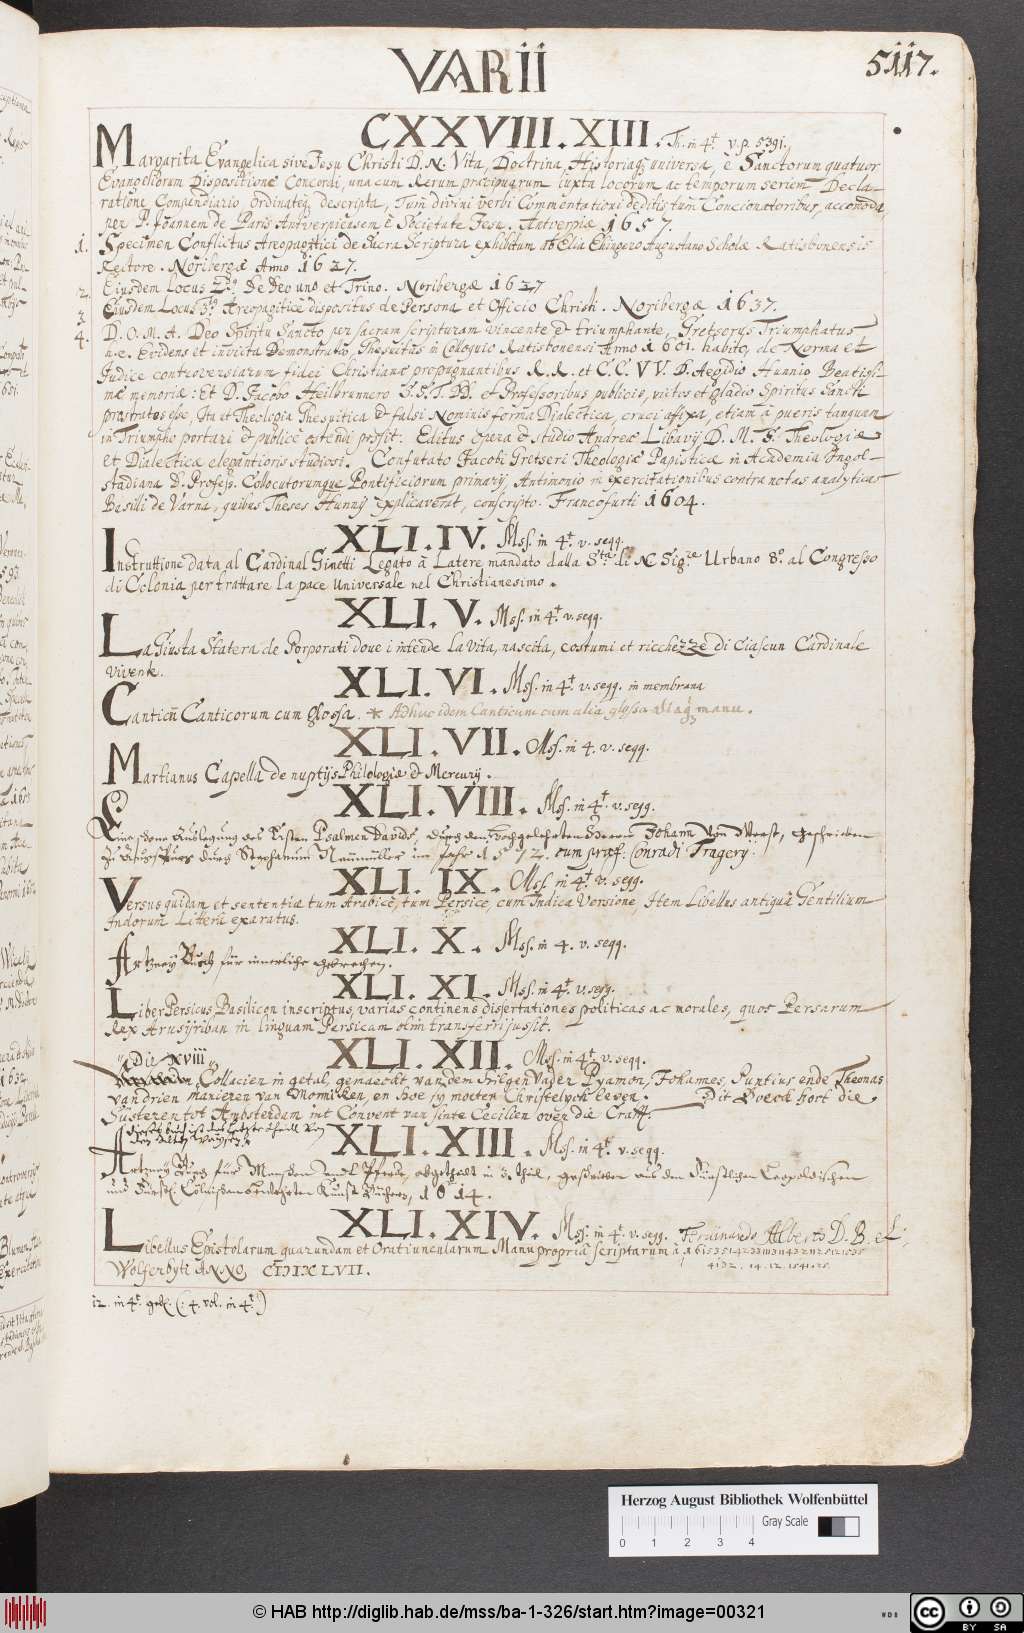 VARII
5117.
CXXVIII. XIII. Th. in 4t v. p. 5391.
Margarita Evangelica sive Jesu Christi D. N. Vita, Doctrina, Historiaq universa, è Sanctorum quatuor
Evangeliorum Dispositione Concordi, una cum Rerum praecipuarum iuxta locorum ac temporum seriem Decla-
ratione Compendiario, ordinateq descripta, Tum divini verbi Commentationi deditis tum Concionatoribus, accomoda,
per P. Joannem de Paris Antverpiensem è Societate Jesu. Antverpiae 1657.
1. Specimen Conflictus Areopagitici de Sacra Scriptura exhibitum ab Elia Ehingero Augustano Scholae Ratisbonensis
Rectore. Noribergae Anno 1637.
2. Eiusdem Locus 2dq De Deo uno et Trino. Noribergae 1637
3. Eiusdem Locus 3q Areopagiticè dispositus de Persona et Officio Christi. Noribergae 1637.
4. D. O. M. A. Deo Spiritu Sancto per sacram scripturam vincente & triumphante, Gretserus Triumphatus
u.e. Evidens et invicta Demonstratio, Jhesuitas in Colloquio Ratisbonensi Anno 1601. habito, de Norma et
Judice controversiarum fidei Christianae propugnantibus R. R. et C. C. V V. D. Aegidio Hunnio Beatissi-
mae memoriae: Et D. Jacobo Heilbrunnero S. S. T. DD. et Professoribus publicis, victos et gladio Spiritus Sancti
prostratos esse, Ita ut Theologia Jhesuitica & falsi Nominis forma Dialectica, cruci affixa, etiam à pueris tanquam
in Triumpho portari & publicè ostendi possit. Editus opera & studio Andreae Libavij D. M. P. Theologiae
et Dialecticae elegantioris studiosi. Confutato Jacobi Gretseri Theologiae Papisticae in Academia Ingol-
stadiana D. Profess. Collocutorumque Pontificiorum primarij, Antimonio in exercitationibus contra notas analyticas
Basilii de Varna, quibus Theses Hunnij explicaverat, conscripto. Francofurti 1604.
XLI. IV. Mss. in 4t. v. seqq.
Instruttione data al Cardinal Ginetti Legato à Latere mandato dalla Sta di N Sigre Urbano 8o. al Congresso
di Colonia per trattare la pace Universale nel Christianesimo.
XLI. V. Mss. in 4t. v. seqq.
La Giusta Statera de Porporati dove i intende la vita, nascita, costumi et ricchezze di Ciascun Cardinale
vivente.
XLI. VI. Mss. in 4t. v. seqq. in membrana
Canticu Canticorum cum glossa. * Adhuc idem Canticum cum alia glossa aliaq manu.
XLI. VII. Mss. in 4. v. seqq.
Martianus Capella de nuptijs Philologiae & Mercurij.
XLI. VIII. Mss. in 4t. v. seqq.
Eine schone Auslegung des Ersten Psalmen Davids, durch den Hochgelehrten Herrn Johann von Werst, geschrieben
zu Augspurg durch Stephanum Neumüller im Jahr 1572. cum praef. Conradi Tragery.
XLI. IX. Mss. in 4t. v. seqq.
Versus quidam et sententiae tum Arabicè, tum Persice, cum Indica Versione, Item Libellus antiqua Gentilium
Indorum Litera exaratus.
XLI. X. Mss. in 4. v. seqq.
Artzney Buch für innerliche gebrechen.
XLI. XI. Mss. in 4t. v. seqq.
Liber Persicus Basilicon inscriptus, varias continens dissertationes politicas ac morales, quos Persarum
Rex Anusyriban in linguam Persicam olim transferri jussit.
XLI. XII. Mss. in 4t. v. seqq.
Die xviii
Collacien in getal, gemaeckt van dem Hilgen Vader Pyamon, Johannes, Puntius ende Theonas
van drien Manieren van Monniken, en hoe sy moeten Christelyck leven. Dit Boeck hort die
Susteren tot Amsterdam int Convent van sinte Cecilien over die Craft.
XLI. XIII. Mss. in 4t. v. seqq.
Artzney Buch für Menschen und Pferde, abgetheilt in 3. theil, geschrieben aus den Fürstlichen Leopoldischen
und Curfl. Cölnischen bewehrten Kunst Büchern, 1614.
XLI. XIV. Mss. in 4t. v. seqq. Ferdinando Alberto D. B. et L.
Libellus Epistolarum quarundam et Oratiuncularum Manu propria scriptarum à
Wolferbyti ANNO, CIƆIƆXLVII.
12. in 4t. geb. (: 4. vol. in 4t :)
Herzog August Bibliothek Wolfenbüttel
0 1 2 3 4 Gray Scale
© HAB http://diglib.hab.de/mss/ba-1-326/start.htm?image=00321
WDB
cc BY SA